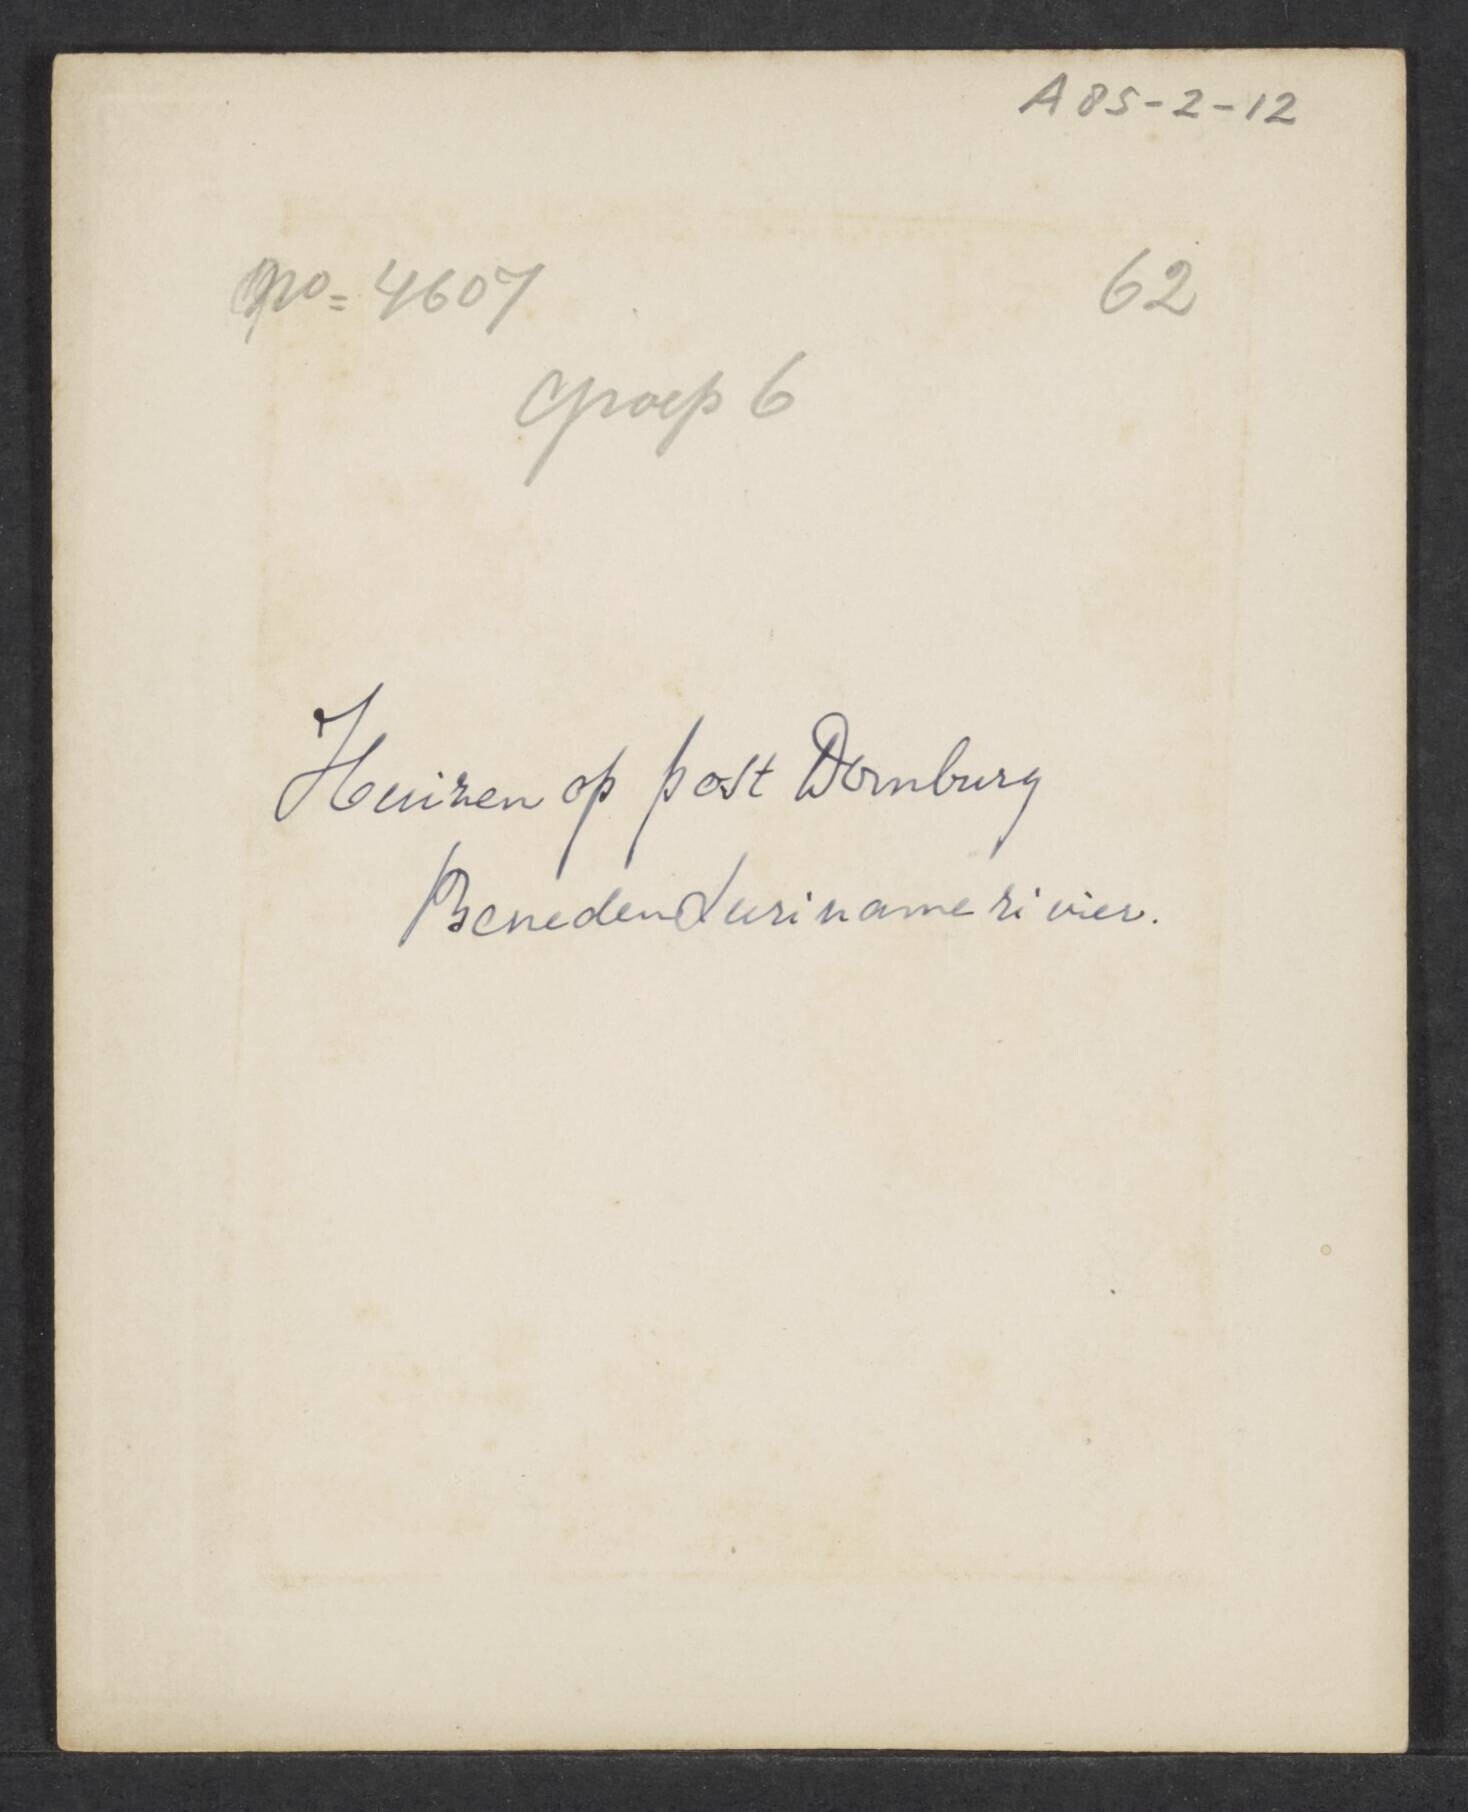 A 85-2-12
No= 4607 62
Groep 6
Huizen op post Domburg
Beneden Suriname rivier.